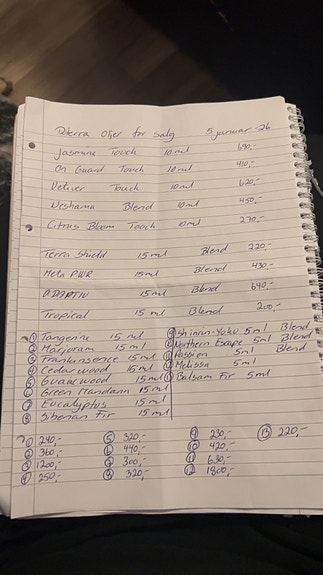 Doterra Oljer for salg 5 januar -26
Jasmine Touch 10 ml 690,-
On Guard Touch 10 ml 410,-
Vetiver Touch 10 ml 620,-
Neshama Blend 10 ml 450,-
Citrus Bloom Touch 10 ml 270,-
Terra Shield 15 ml Blend 220,-
Meta PWR 15 ml Blend 430,-
ADAPTIV 15 ml Blend 640,-
Tropical 15 ml Blend 200,-
① Tangerine 15 ml ⑨ Shinrin-Yoku 5 ml Blend
② Marjoram 15 ml ⑩ Northern Escape 5 ml Blend
③ Frankinsence 15 ml ⑪ Passion 5 ml Blend
④ Cedarwood 15 ml ⑫ Melissa 5 ml
⑤ Guaiacwood 15 ml ⑬ Balsam Fir 5 ml
⑥ Green Mandarin 15 ml
⑦ Eucalyptus 15 ml
⑧ Siberian Fir 15 ml
① 240,- ⑤ 320,- ⑨ 230,- ⑬ 220,-
② 360,- ⑥ 440,- ⑩ 420,-
③ 1200,- ⑦ 300,- ⑪ 630,-
④ 250,- ⑧ 320,- ⑫ 1800,-